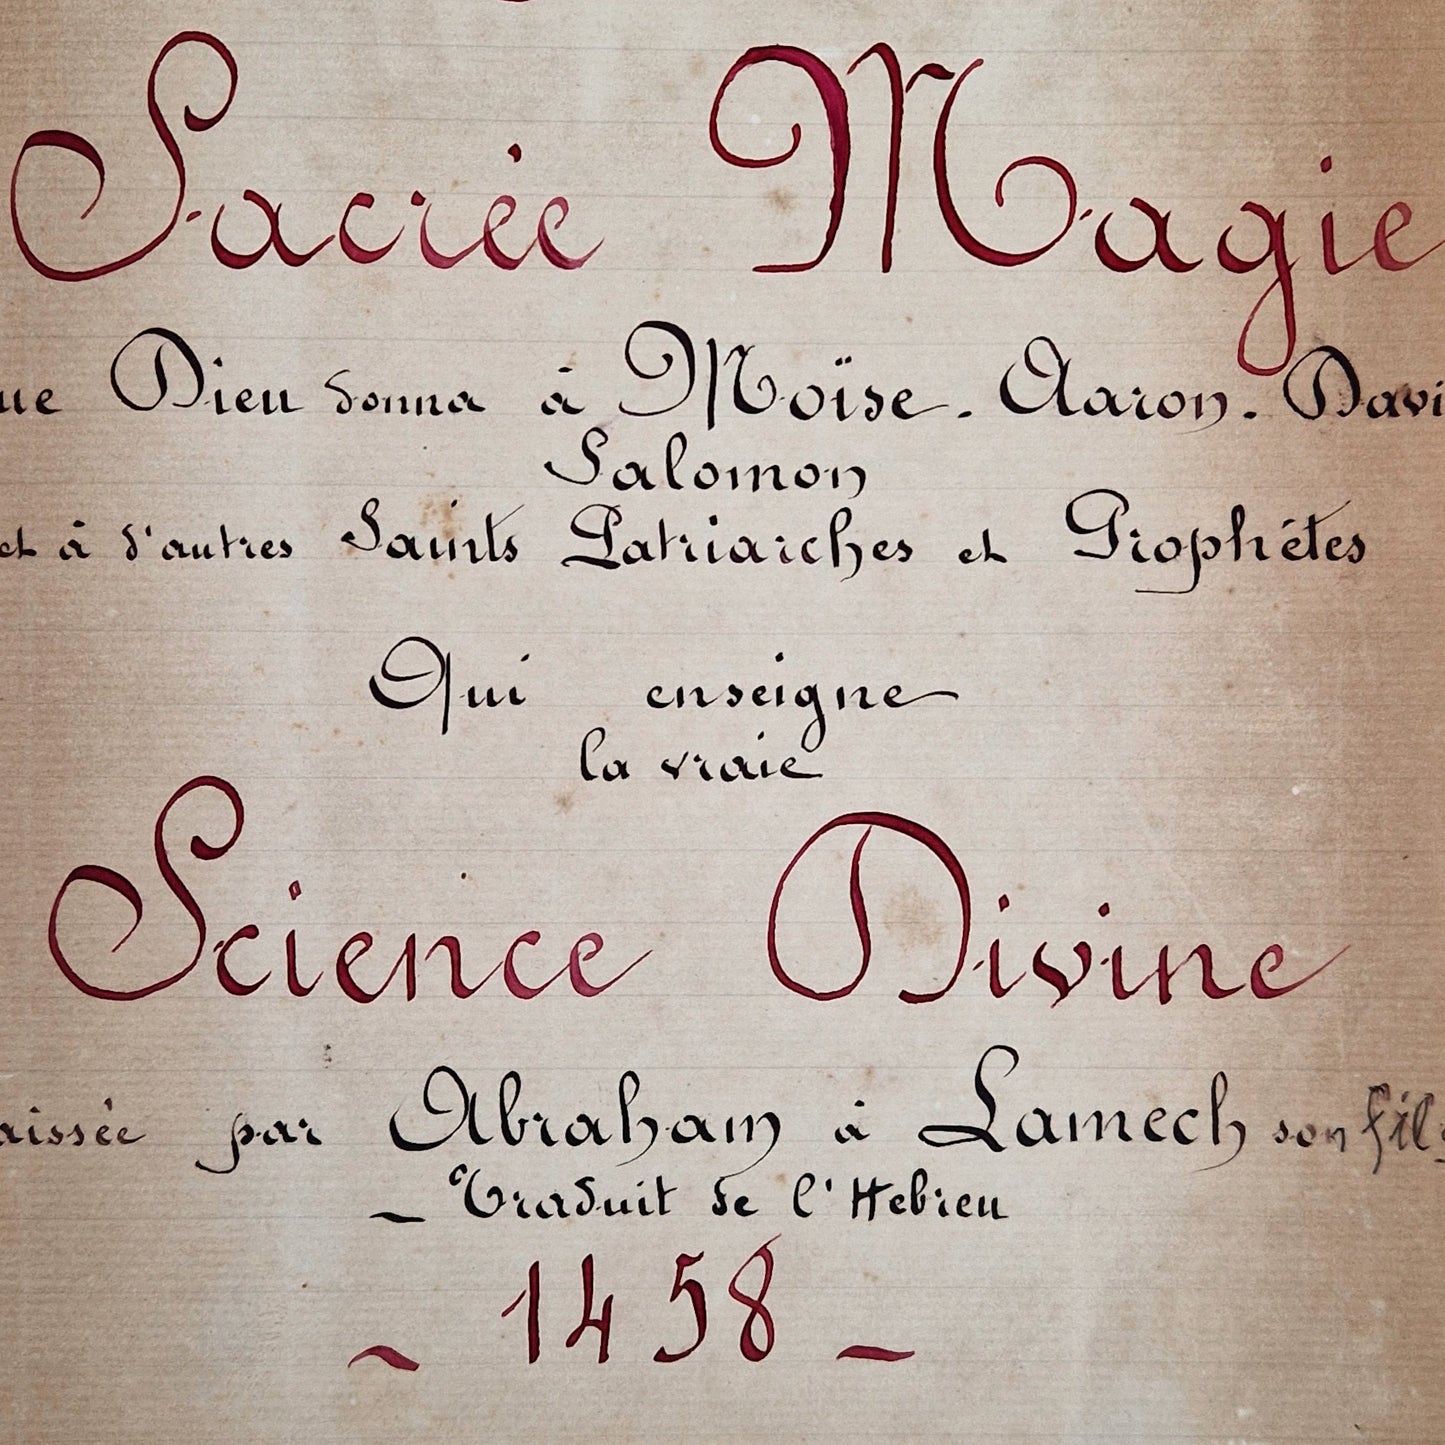 Sacrée Magie
ue Dieu donna à Moïse. Aaron. Davi
Salomon
et à d'autres Saints Patriarches et Prophètes
Qui enseigne
la vraie
Science Divine
aissée par Abraham à Lamech son fils
– Traduit de l'Hebreu
– 1458 –